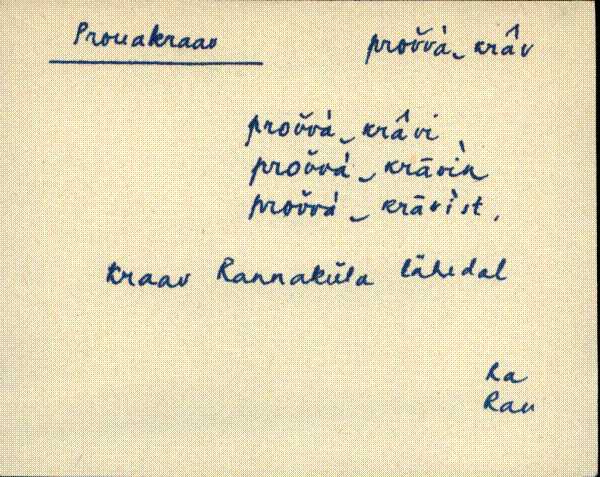 Prouakraav provvà‿krâv
provvá‿krâvi
provvá‿krāvìn
provvá‿krāvìst,
Kraav Rannaküla lähedal
Ra
Rau